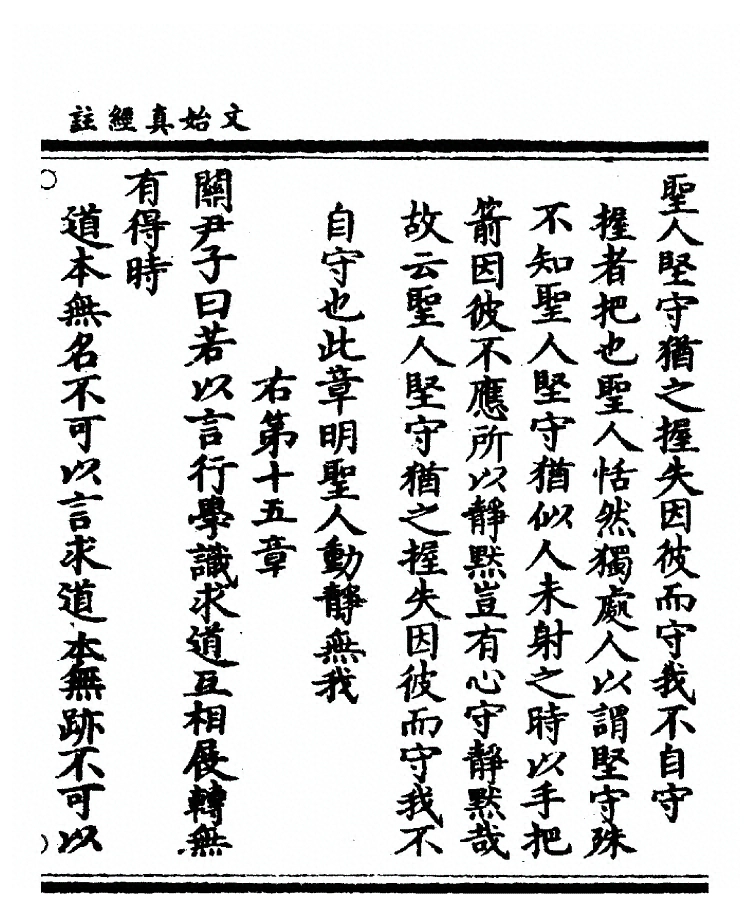 文始真經註
聖人堅守猶之握失因彼而守我不自守
握者把也聖人恬然獨處人以謂堅守殊
不知聖人堅守猶似人未射之時以手把
箭因彼不應所以靜默豈有心守靜默哉
故云聖人堅守猶之握失因彼而守我不
自守也此章明聖人動靜無我
右第十五章
關尹子曰若以言行學識求道互相展轉無
有得時
道本無名不可以言求道本無跡不可以